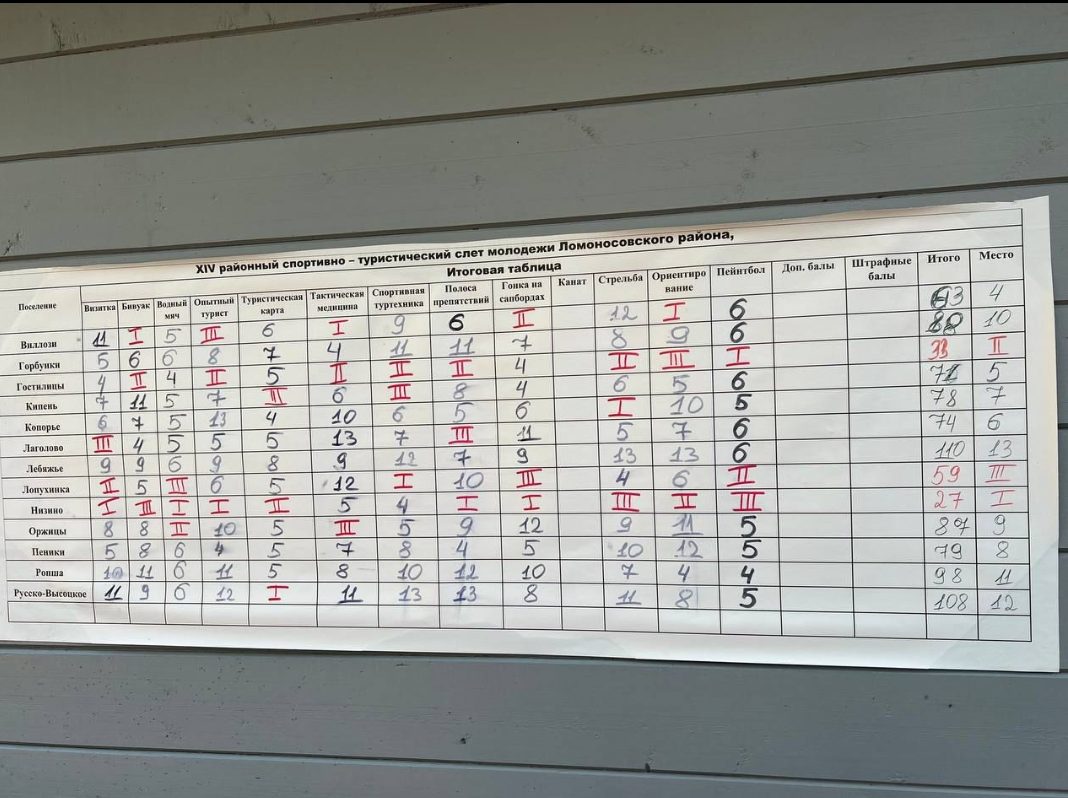 XIV районный спортивно – туристический слет молодежи Ломоносовского района,
Итоговая таблица
Поселение Визитка Бивуак Водный мяч Опытный турист Туристическая карта Тактическая медицина Спортивная туртехника Полоса препятствий Гонка на сапбордах Канат Стрельба Ориентиро вание Пейнтбол Доп. балы Штрафные балы Итого Место
Виллози 11 I 5 III 6 I 9 6 II 12 I 6 63 4
Горбунки 5 6 6 8 7 4 11 11 7 8 9 6 88 10
Гостилицы 4 II 4 II 5 II II II 4 II III I 33 II
Кипень 7 11 5 7 III 6 III 8 4 6 5 6 71 5
Копорье 6 7 5 13 4 10 6 5 6 I 10 5 78 7
Лаголово III 4 5 5 5 13 7 III 11 5 7 6 74 6
Лебяжье 9 9 6 9 8 9 12 7 9 13 13 6 110 13
Лопухинка II 5 III 6 5 12 I 10 III 4 6 II 59 III
Низино I III I I II 5 4 I I III II III 27 I
Оржицы 8 8 II 10 5 III 5 9 12 9 11 5 87 9
Пеники 5 8 6 4 5 7 8 4 5 10 12 5 79 8
Ропша 10 11 6 11 5 8 10 12 10 7 4 4 98 11
Русско-Высоцкое 11 9 6 12 I 11 13 13 8 11 8 5 108 12